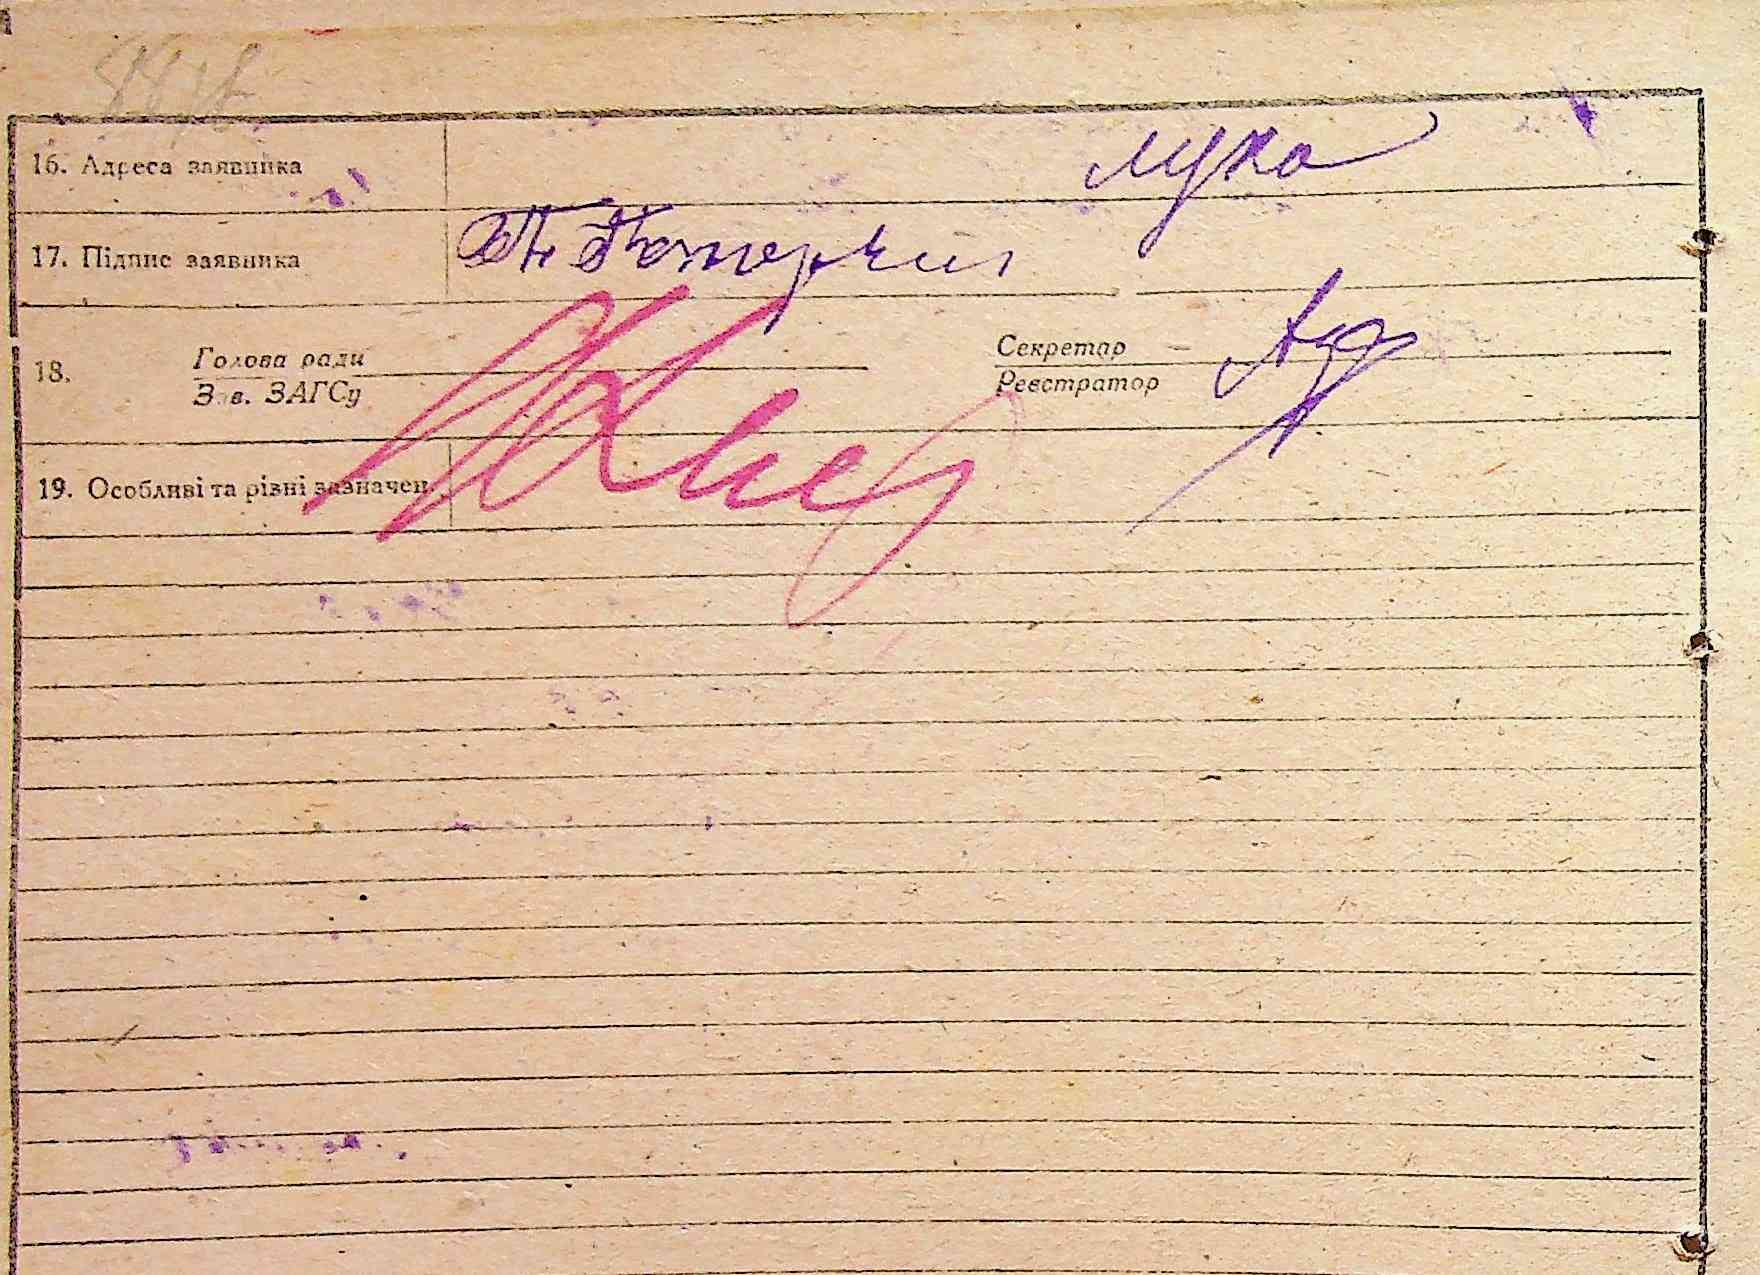 16. Адреса заявника Лука
17. Підпис заявника
18. Голова ради Секретар
Зав. ЗАГСу Реєстратор
19. Особливі та різні зазначен.